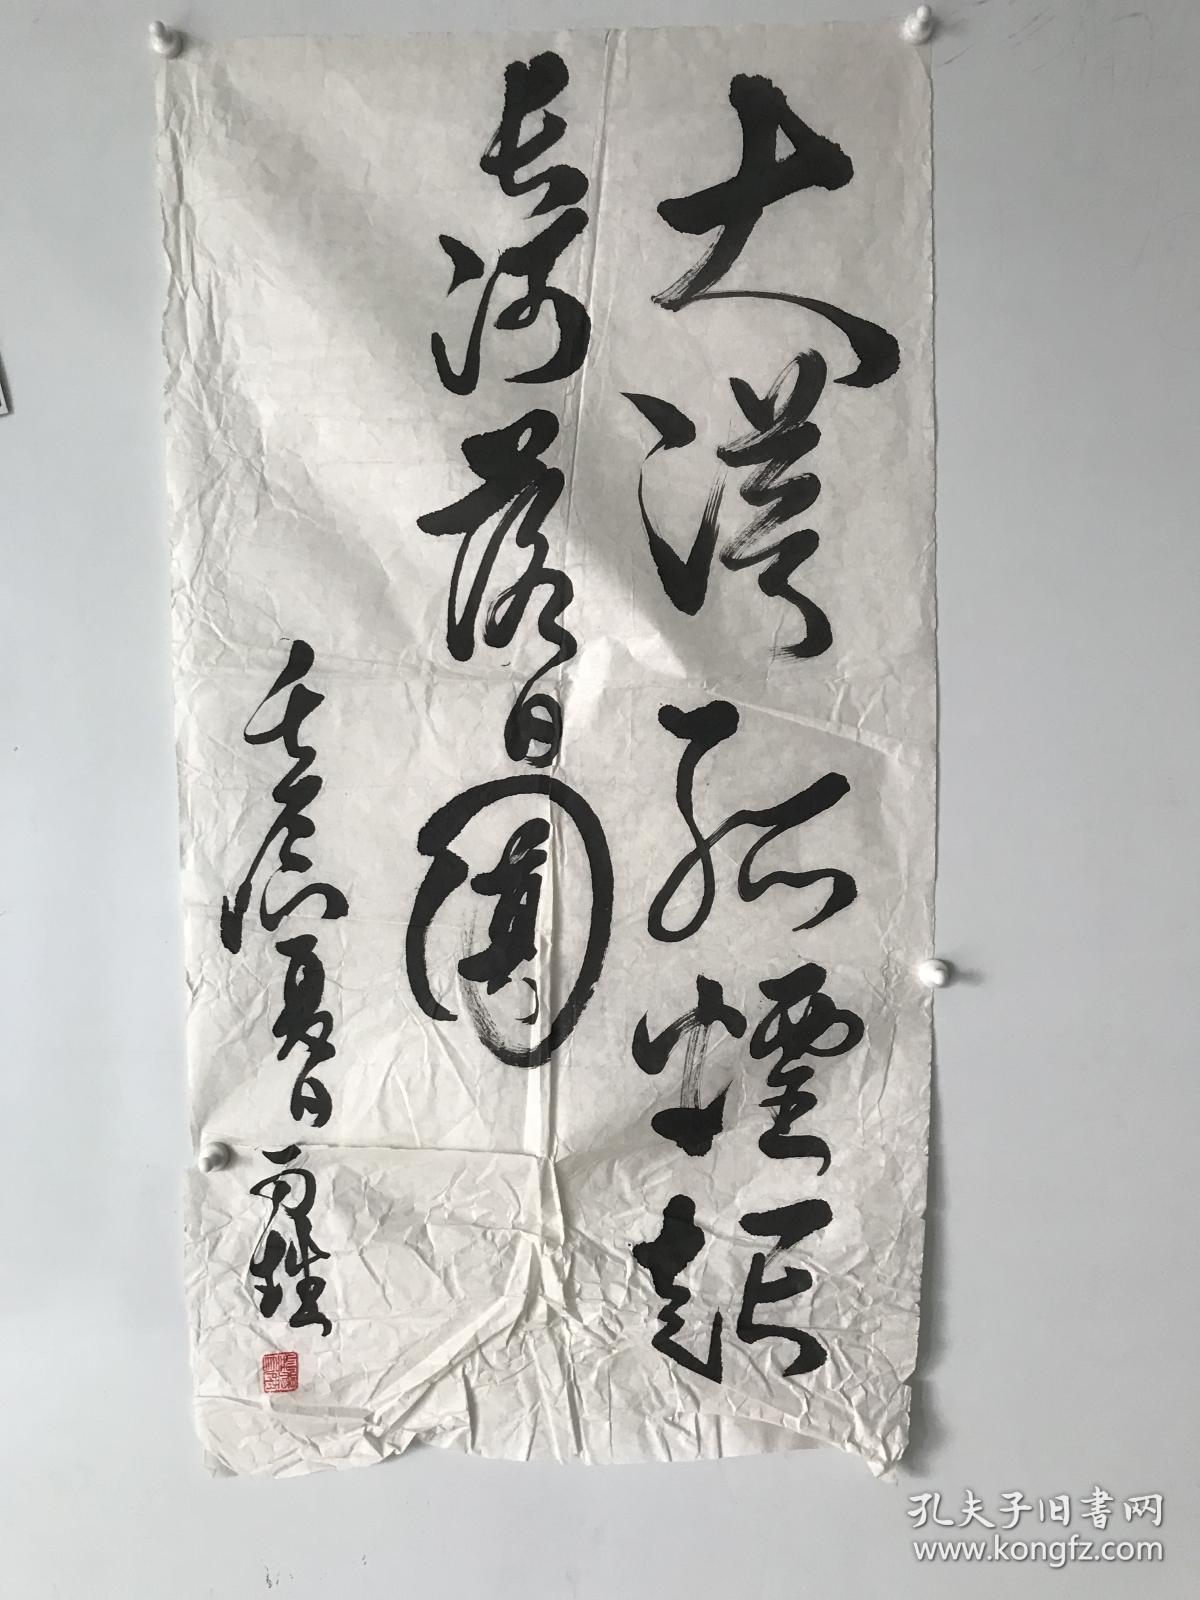 大漠孤煙
長河落日圓
壬夏日
孔夫子旧书网
www.kongfz.com